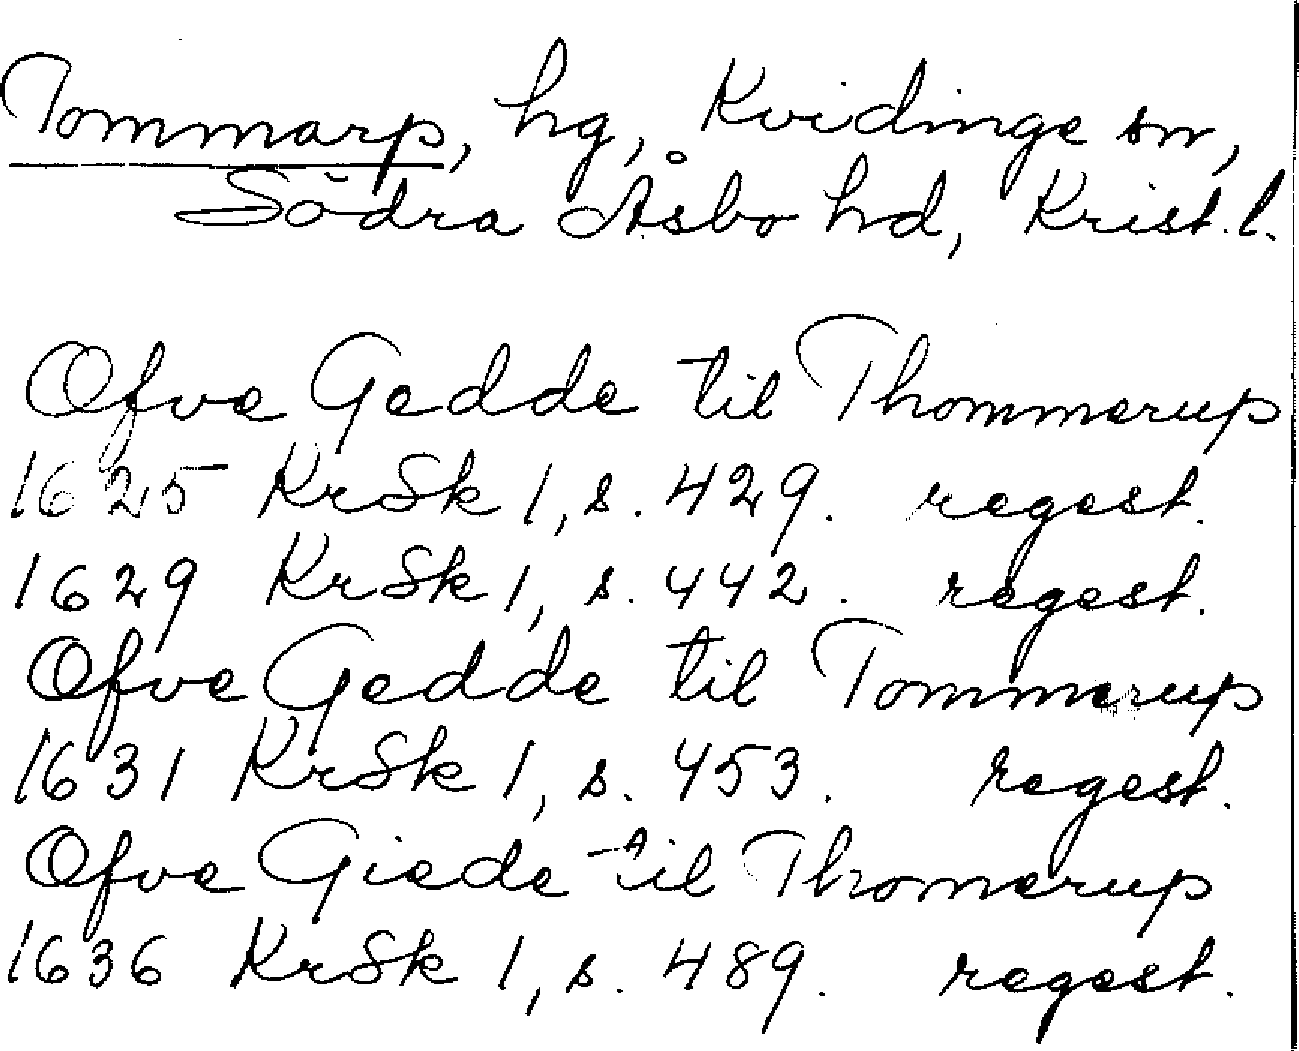 Tommarp, hg, Kvidinge sn,
Södra Åsbo hd, Krist. l.
Ofve Gedde til Thommerup
1625 KrSk 1, s. 429. regest.
1629 KrSk 1, s. 442. regest.
Ofve Gedde til Tommerup
1631 KrSk 1, s. 453. regest.
Ofve Giede til Thomerup
1636 KrSk 1, s. 489. regest.